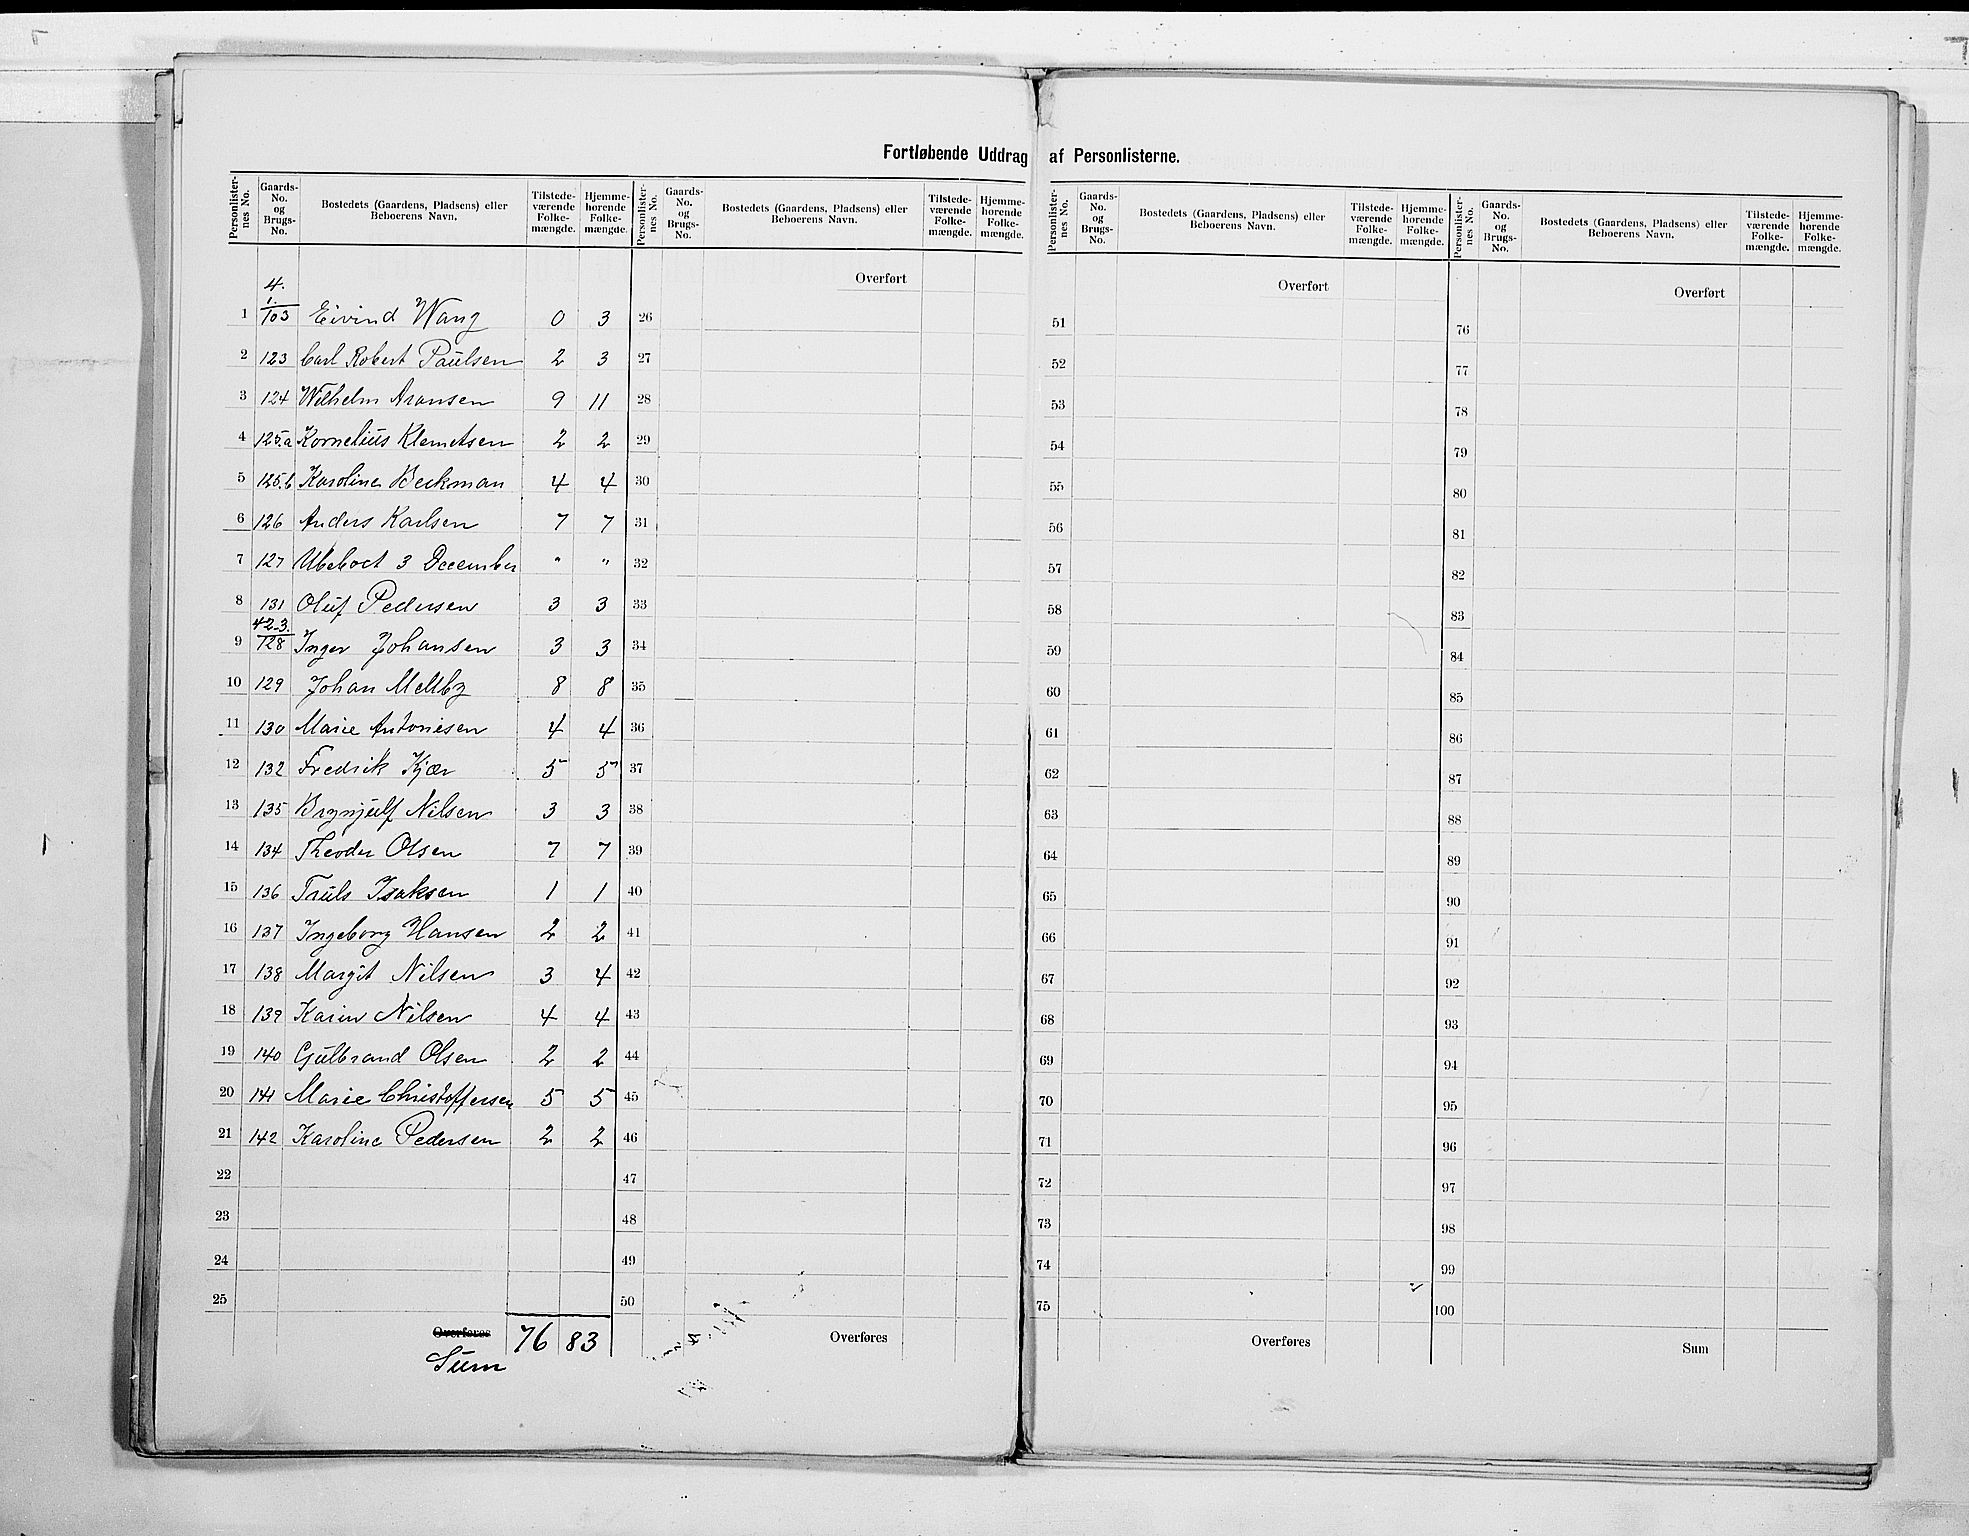 Fortløbende Uddrag af Personlisterne.
Personlister-nes No. Gaards-No. og Brugs-No. Bostedets (Gaardens, Pladsens) eller Beboerens Navn. Tilstede-værende Folke-mængde. Hjemme-hørende Folke-mængde.
4.
1 1./103 Eivind Wang 0 3
2 123 Carl Robert Paulsen 2 3
3 124 Wilhelm Aronsen 9 11
4 125.a Kornelius Klemetsen 2 2
5 125.b Karoline Beckman 4 4
6 126 Anders Karlsen 7 7
7 127 Ubeboet 3 December " "
8 131 Oluf Pedersen 3 3
9 42-3./128 Inger Johansen 3 3
10 129 Johan Mellby 8 8
11 130 Marie Antonisen 4 4
12 132 Fredrik Kjær 5 5
13 135 Brynjulf Nilsen 3 3
14 134 Theodor Olsen 7 7
15 136 Truls Isaksen 1 1
16 137 Ingeborg Hansen 2 2
17 138 Margit Nilsen 3 4
18 139 Karin Nilsen 4 4
19 140 Gulbrand Olsen 2 2
20 141 Marie Christoffersen 5 5
21 142 Karoline Pedersen 2 2
22
23
24
25
Overføres 76 83
Sum
Personlister-nes No. Gaards-No. og Brugs-No. Bostedets (Gaardens, Pladsens) eller Beboerens Navn. Tilstede-værende Folke-mængde. Hjemme-hørende Folke-mængde.
Overført
26
27
28
29
30
31
32
33
34
35
36
37
38
39
40
41
42
43
44
45
46
47
48
49
50
Overføres
Personlister-nes No. Gaards-No. og Brugs-No. Bostedets (Gaardens, Pladsens) eller Beboerens Navn. Tilstede-værende Folke-mængde. Hjemme-hørende Folke-mængde.
Overført
51
52
53
54
55
56
57
58
59
60
61
62
63
64
65
66
67
68
69
70
71
72
73
74
75
Overføres
Personlister-nes No. Gaards-No. og Brugs-No. Bostedets (Gaardens, Pladsens) eller Beboerens Navn. Tilstede-værende Folke-mængde. Hjemme-hørende Folke-mængde.
Overført
76
77
78
79
80
81
82
83
84
85
86
87
88
89
90
91
92
93
94
95
96
97
98
99
100
Sum